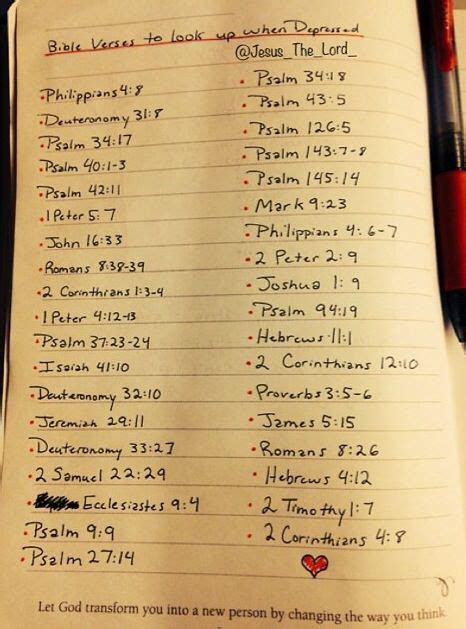 Bible Verses to look up when Depressed
@Jesus_The_Lord_
• Philippians 4:8
• Deuteronomy 31:8
• Psalm 34:17
• Psalm 40:1-3
• Psalm 42:11
• 1 Peter 5:7
• John 16:33
• Romans 8:38-39
• 2 Corinthians 1:3-4
• 1 Peter 4:12-13
• Psalm 37:23-24
• Isaiah 41:10
• Deuteronomy 32:10
• Jeremiah 29:11
• Deuteronomy 33:27
• 2 Samuel 22:29
• Ecclesiastes 9:4
• Psalm 9:9
• Psalm 27:14
• Psalm 34:18
• Psalm 43:5
• Psalm 126:5
• Psalm 143:7-8
• Psalm 145:14
• Mark 9:23
• Philippians 4:6-7
• 2 Peter 2:9
• Joshua 1:9
• Psalm 94:19
• Hebrews 11:1
• 2 Corinthians 12:10
• Proverbs 3:5-6
• James 5:15
• Romans 8:26
• Hebrews 4:12
• 2 Timothy 1:7
• 2 Corinthians 4:8
Let God transform you into a new person by changing the way you think